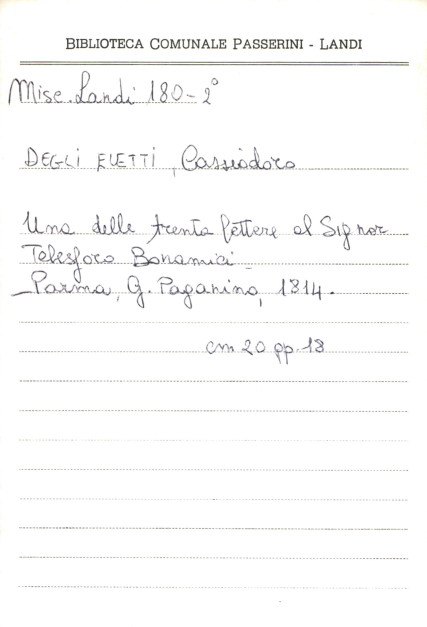 BIBLIOTECA COMUNALE PASSERINI - LANDI
Misc. Landi 180-2°
DEGLI ELETTI, Cassiodoro
Una delle trenta lettere al Signor
Telesforo Bonamici -
- Parma, G. Paganino, 1814.
cm 20 pp. 18